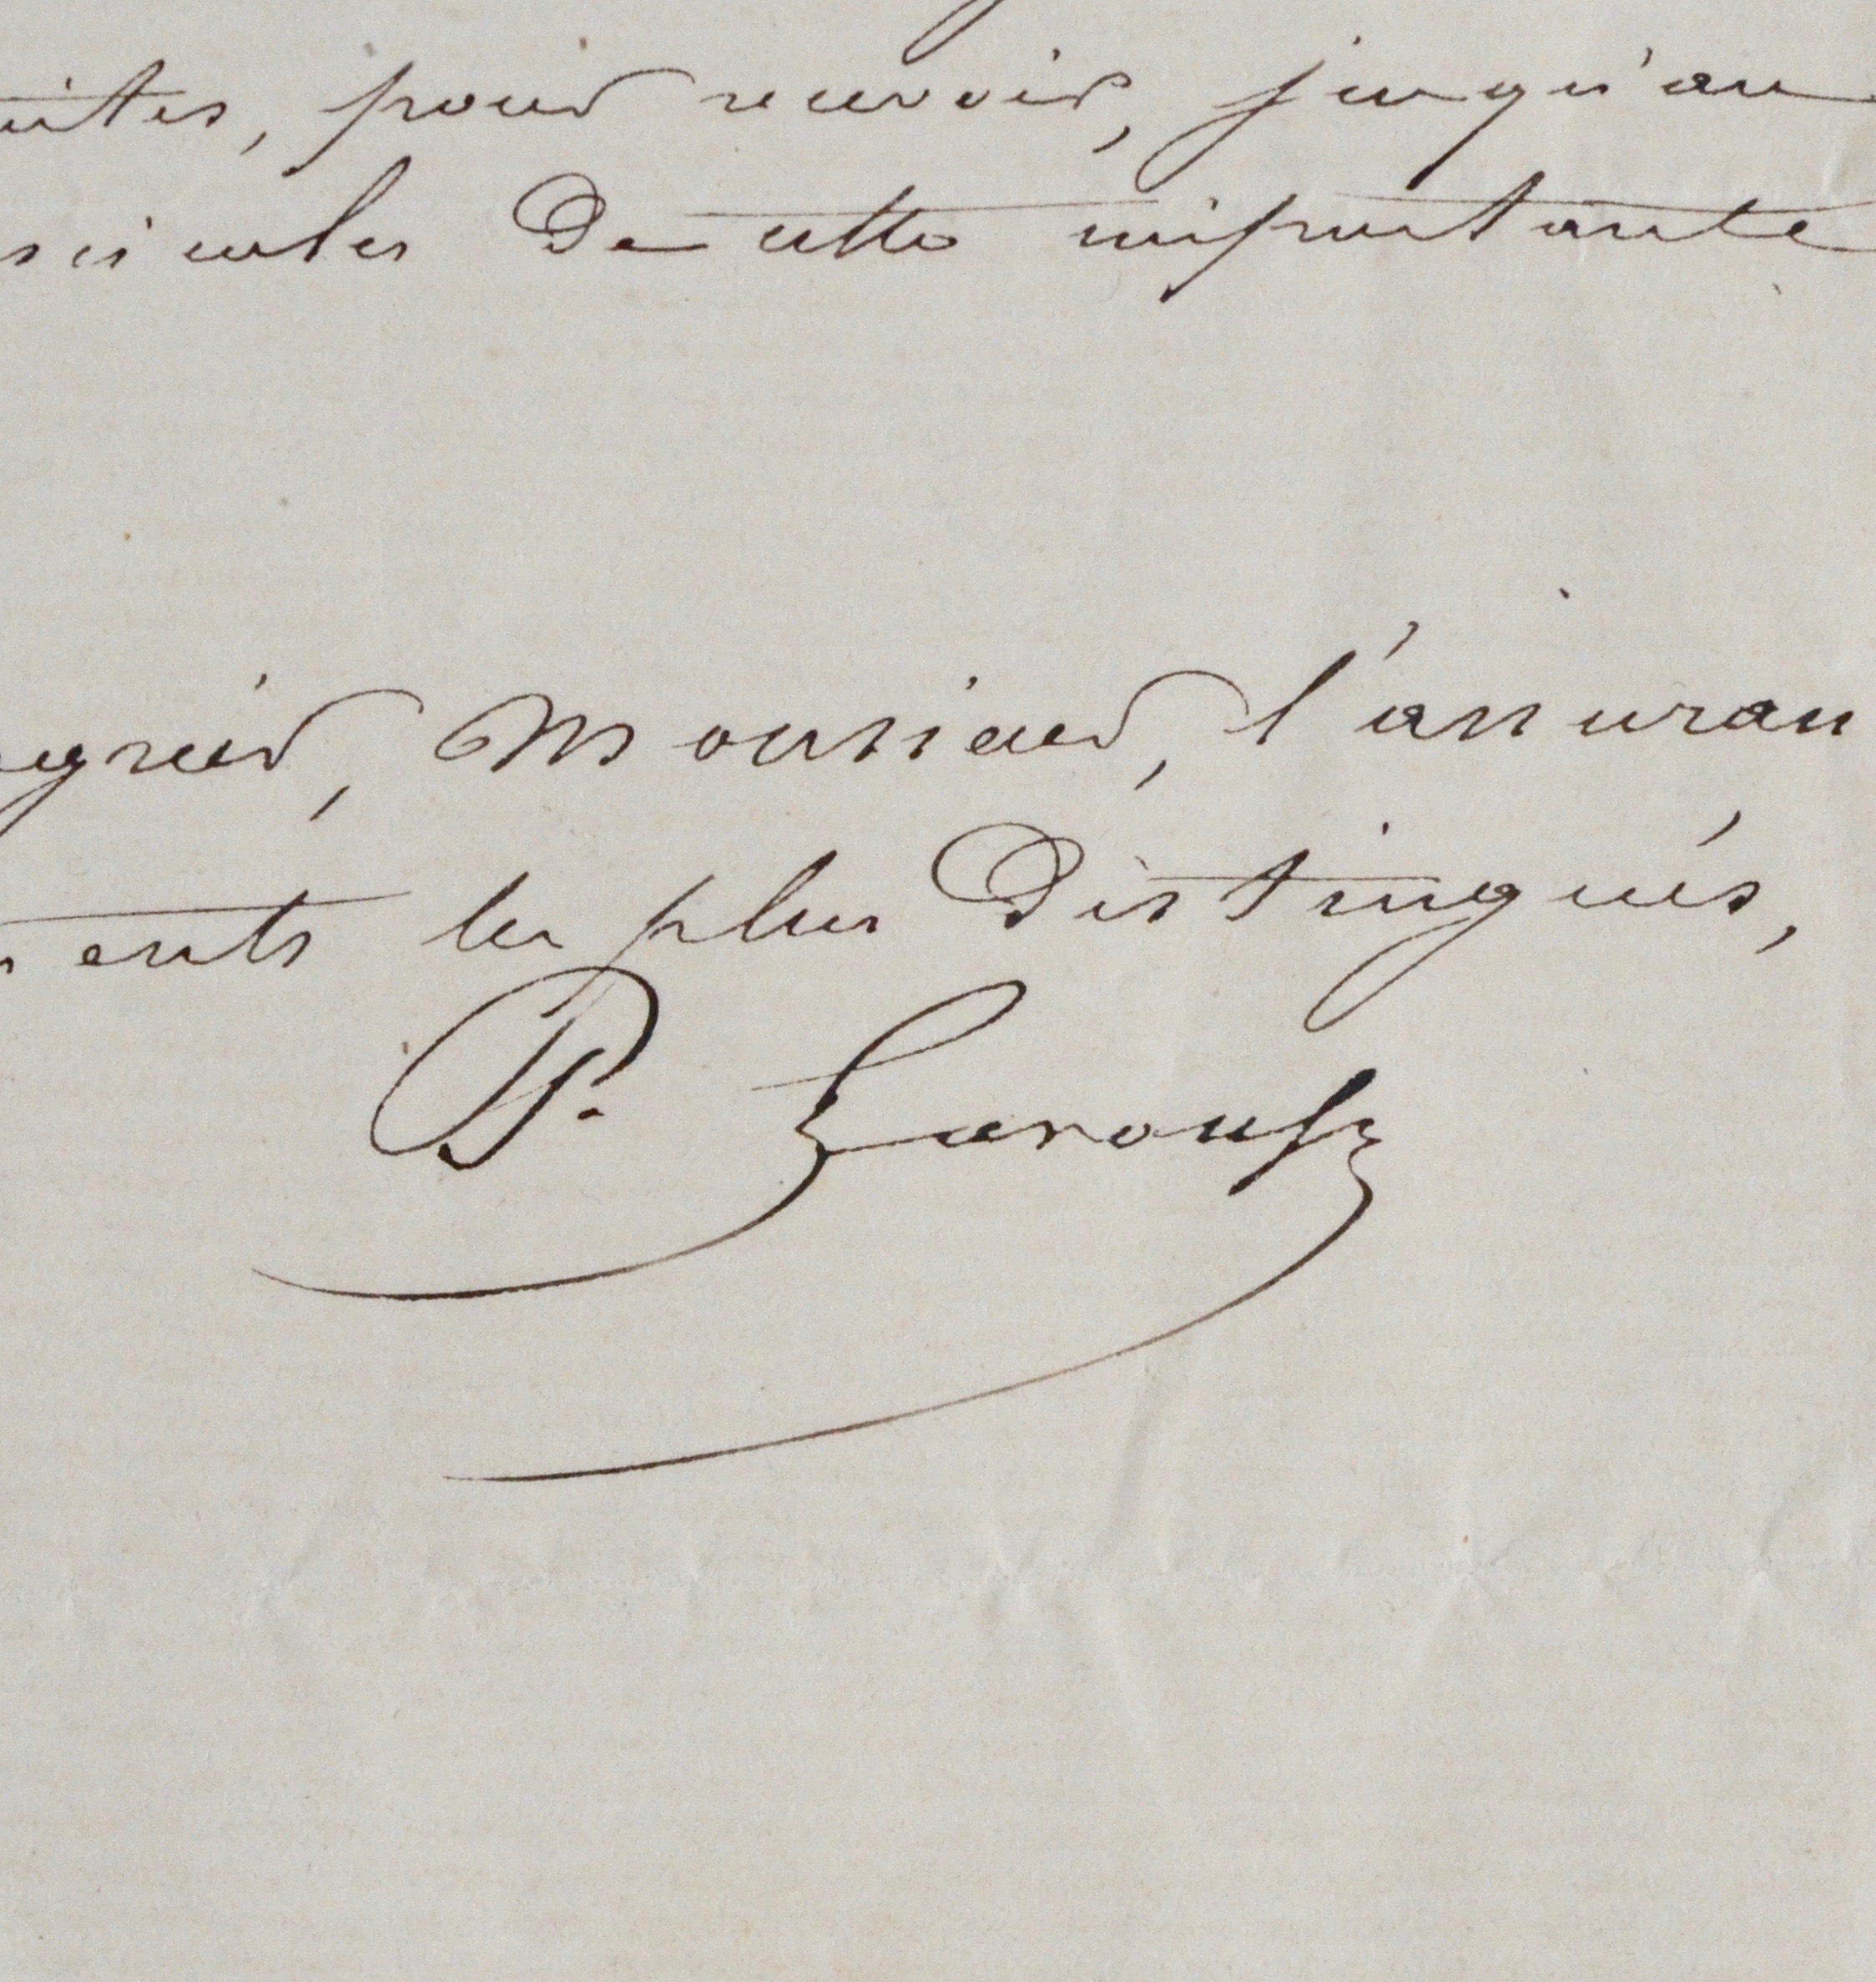 uites, pour recevoir, jusqu'au
sicules de cette importante
agréer, Monsieur, l'assuran
ents les plus distingués,
P. Larousse